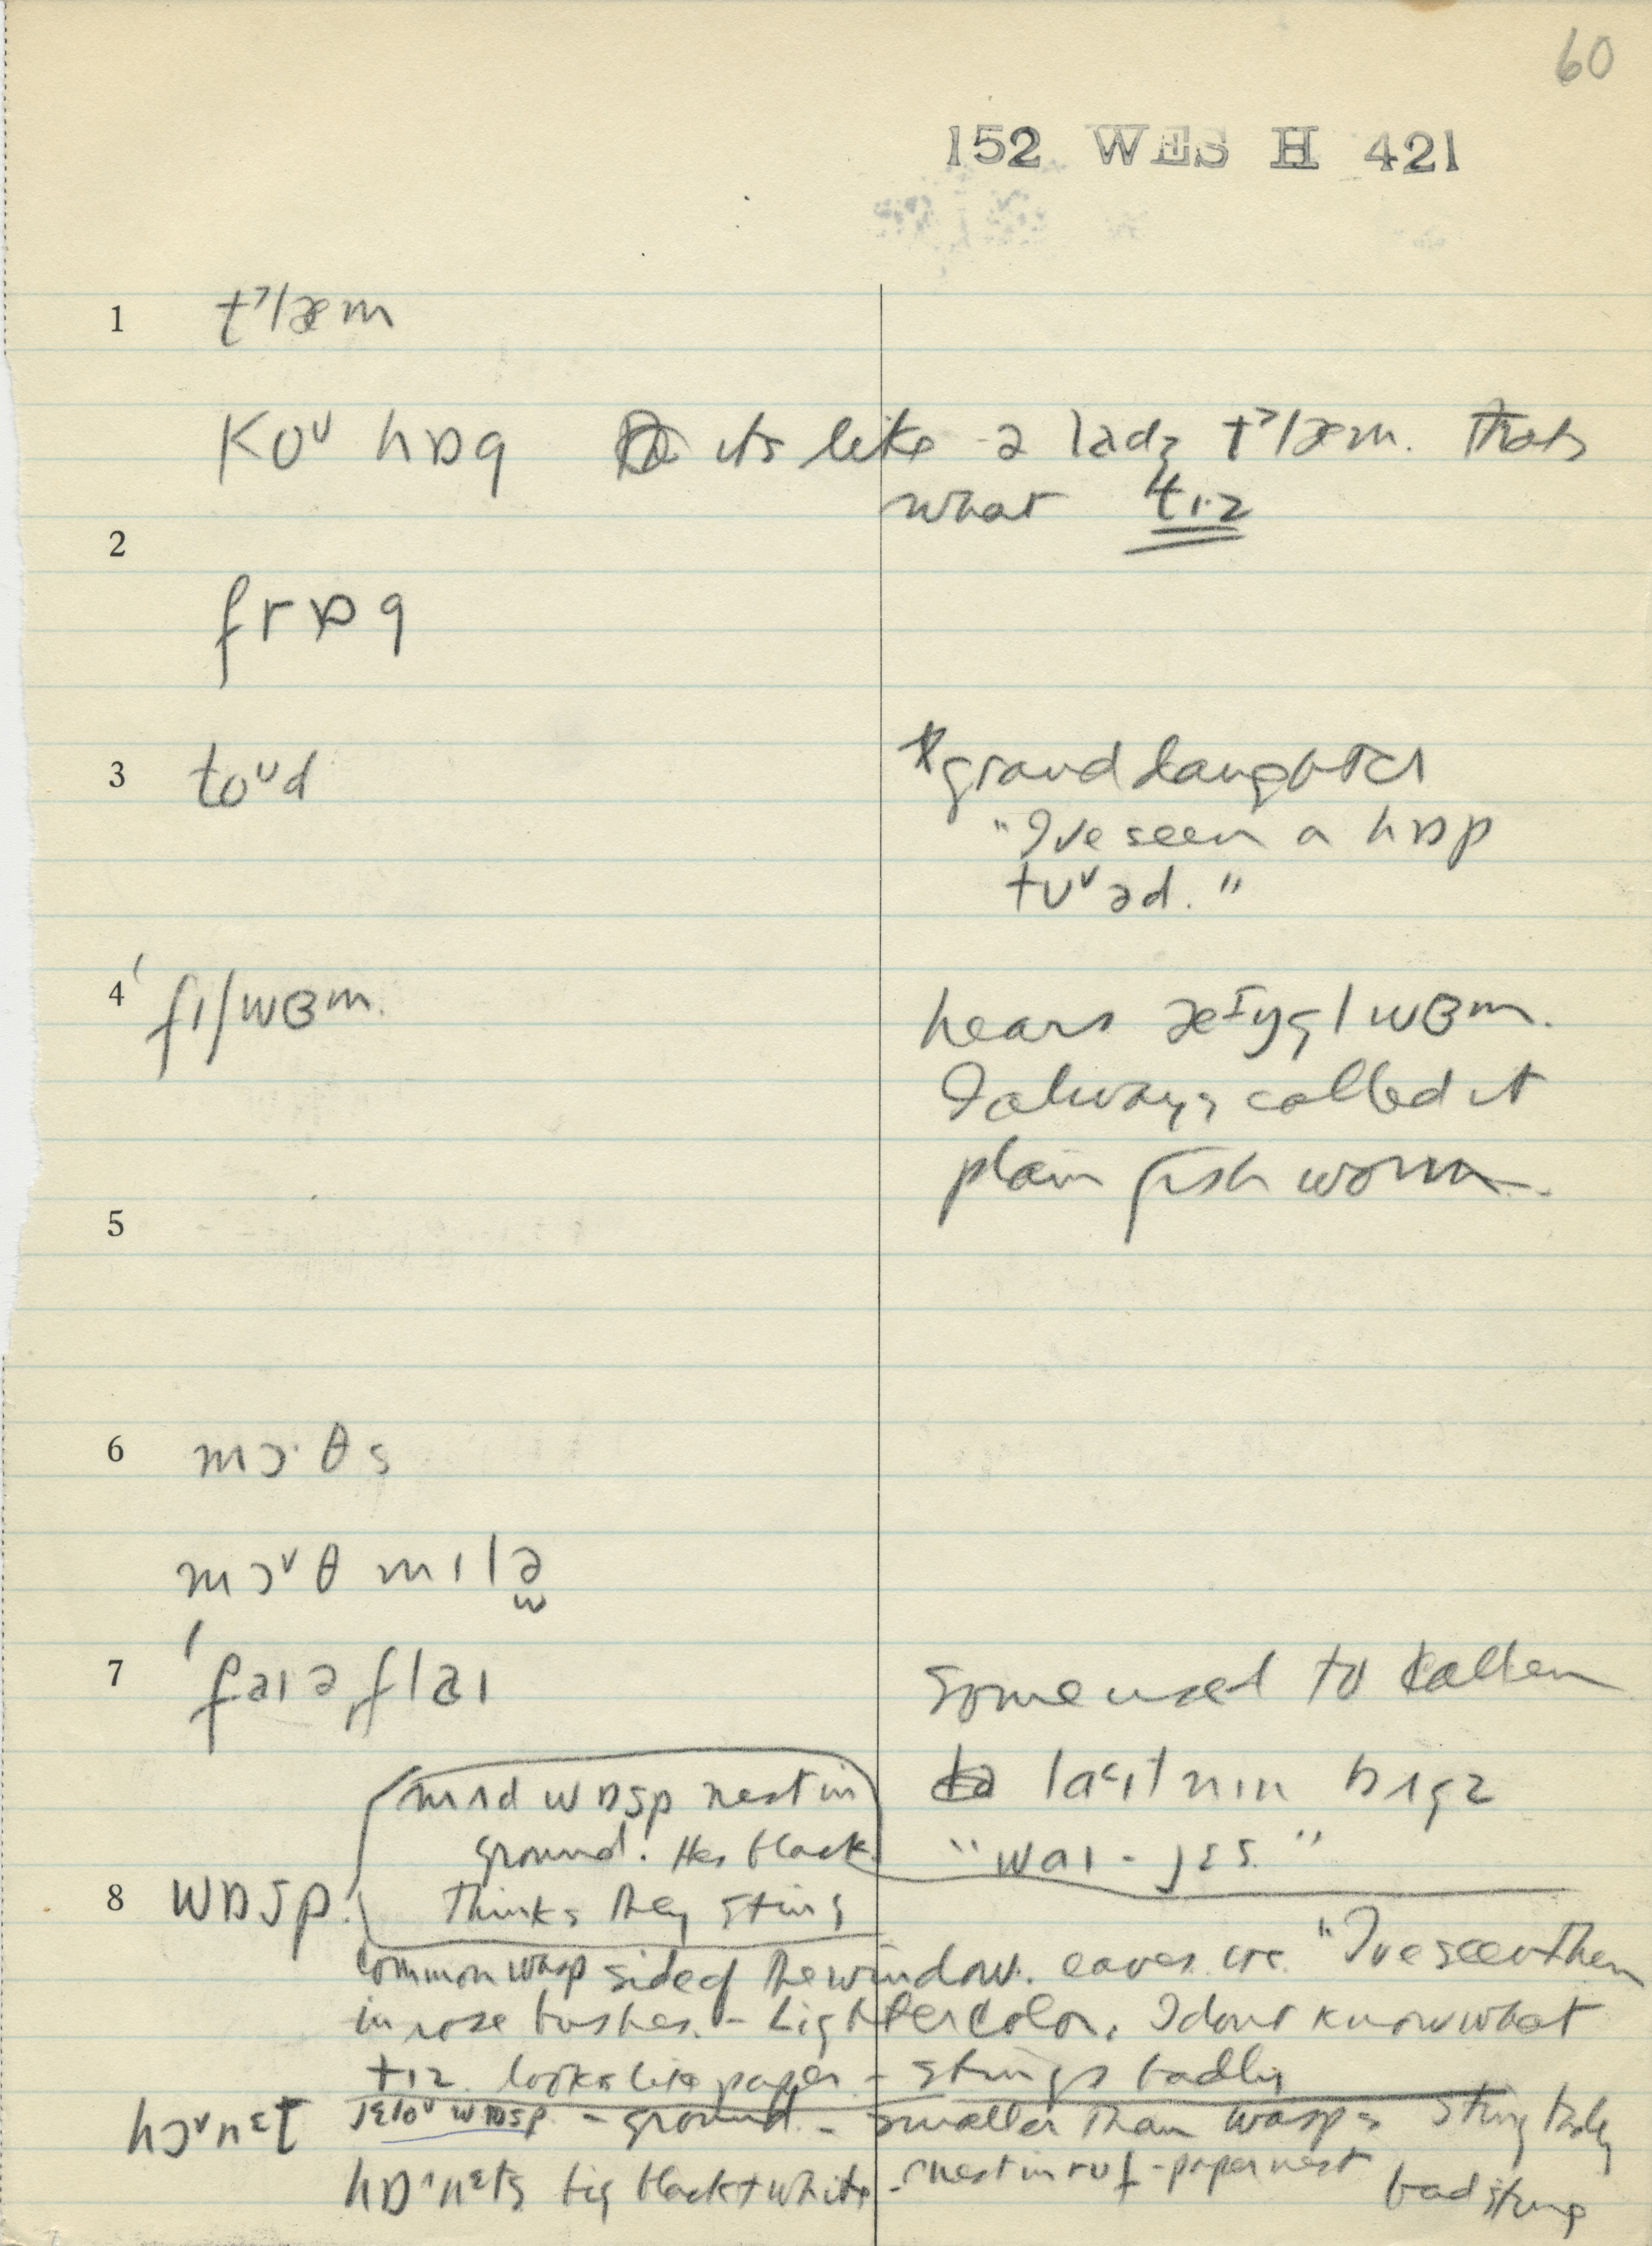 60
152 WES H 421
1 t˺læm
koᵛ hɒg its like a lady t˺læm. Thats
what tɪz
2
frɒg
3 toᵛd
granddaughter
"I've seen a hɒp
tuᵛəd."
4 'fɪʃwɜm.
hears wɜm.
I always called it
plain fish worm.
5
6 mɔ·θs
mɔᵛθ mɪlə
7 'faɪəflaɪ
some used to call em
nɪn bʌgz
mʌd wɒsp nest in
ground. Has black
"waɪ-jɛs."
8 wɒsp. thinks they sting
common wasp side of the window. eaves etc. "I've seen them
in rose bushes. - Lighter color. I dont know what
tɪz looks like paper - stings badly
hɔᵛnɛt jɛloᵛ wɒsp - ground. - smaller than wasps sting badly
hɒ·nɛts big black + white - nest in ruf - paper nest
bad sting